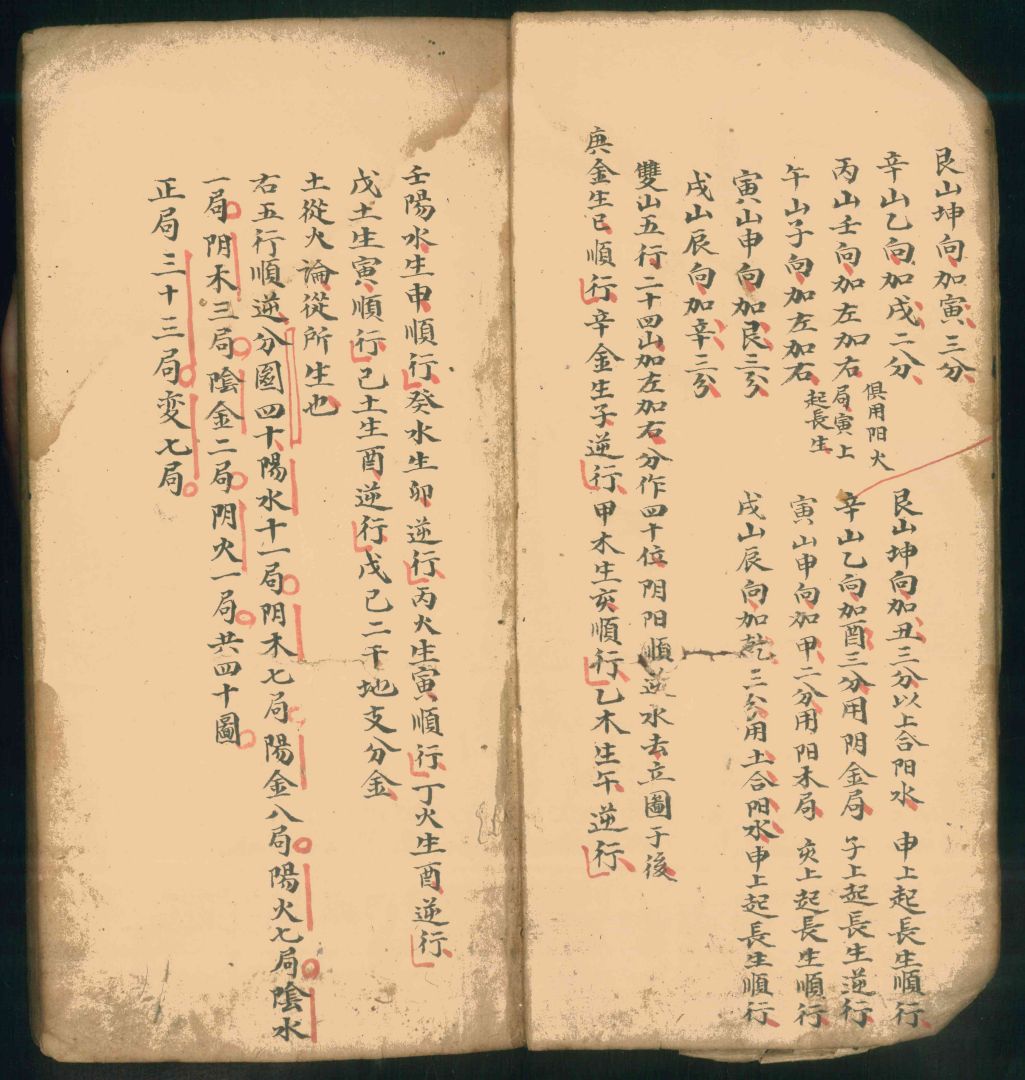 艮山坤向加寅三分
辛山乙向加戌二分
丙山壬向加左加右
午山子向加左加右
俱用阳火
局寅上
起長生
寅山申向加艮三分
戌山辰向加辛三分
艮山坤向加丑三分以上合阳水 申上起長生順行
辛山乙向加酉三分用阴金局 子上起長生逆行
寅山申向加甲二分用阳木局 亥上起長生順行
戌山辰向加乾三分用土合阳水申上起長生順行
雙山五行二十四山加左加右分作四十位阴阳順逆水去立圖于後
庚金生巳順行辛金生子逆行甲木生亥順行乙木生午逆行
壬陽水生申順行癸水生卯逆行丙火生寅順行丁火生酉逆行
戊土生寅順行己土生酉逆行戊己二干地支分金
土從火論從所生也
右五行順逆分圖四十陽水十一局阴木七局陽金八局陽火七局陰水
一局阴木三局陰金二局阴火一局共四十圖
正局三十三局变七局